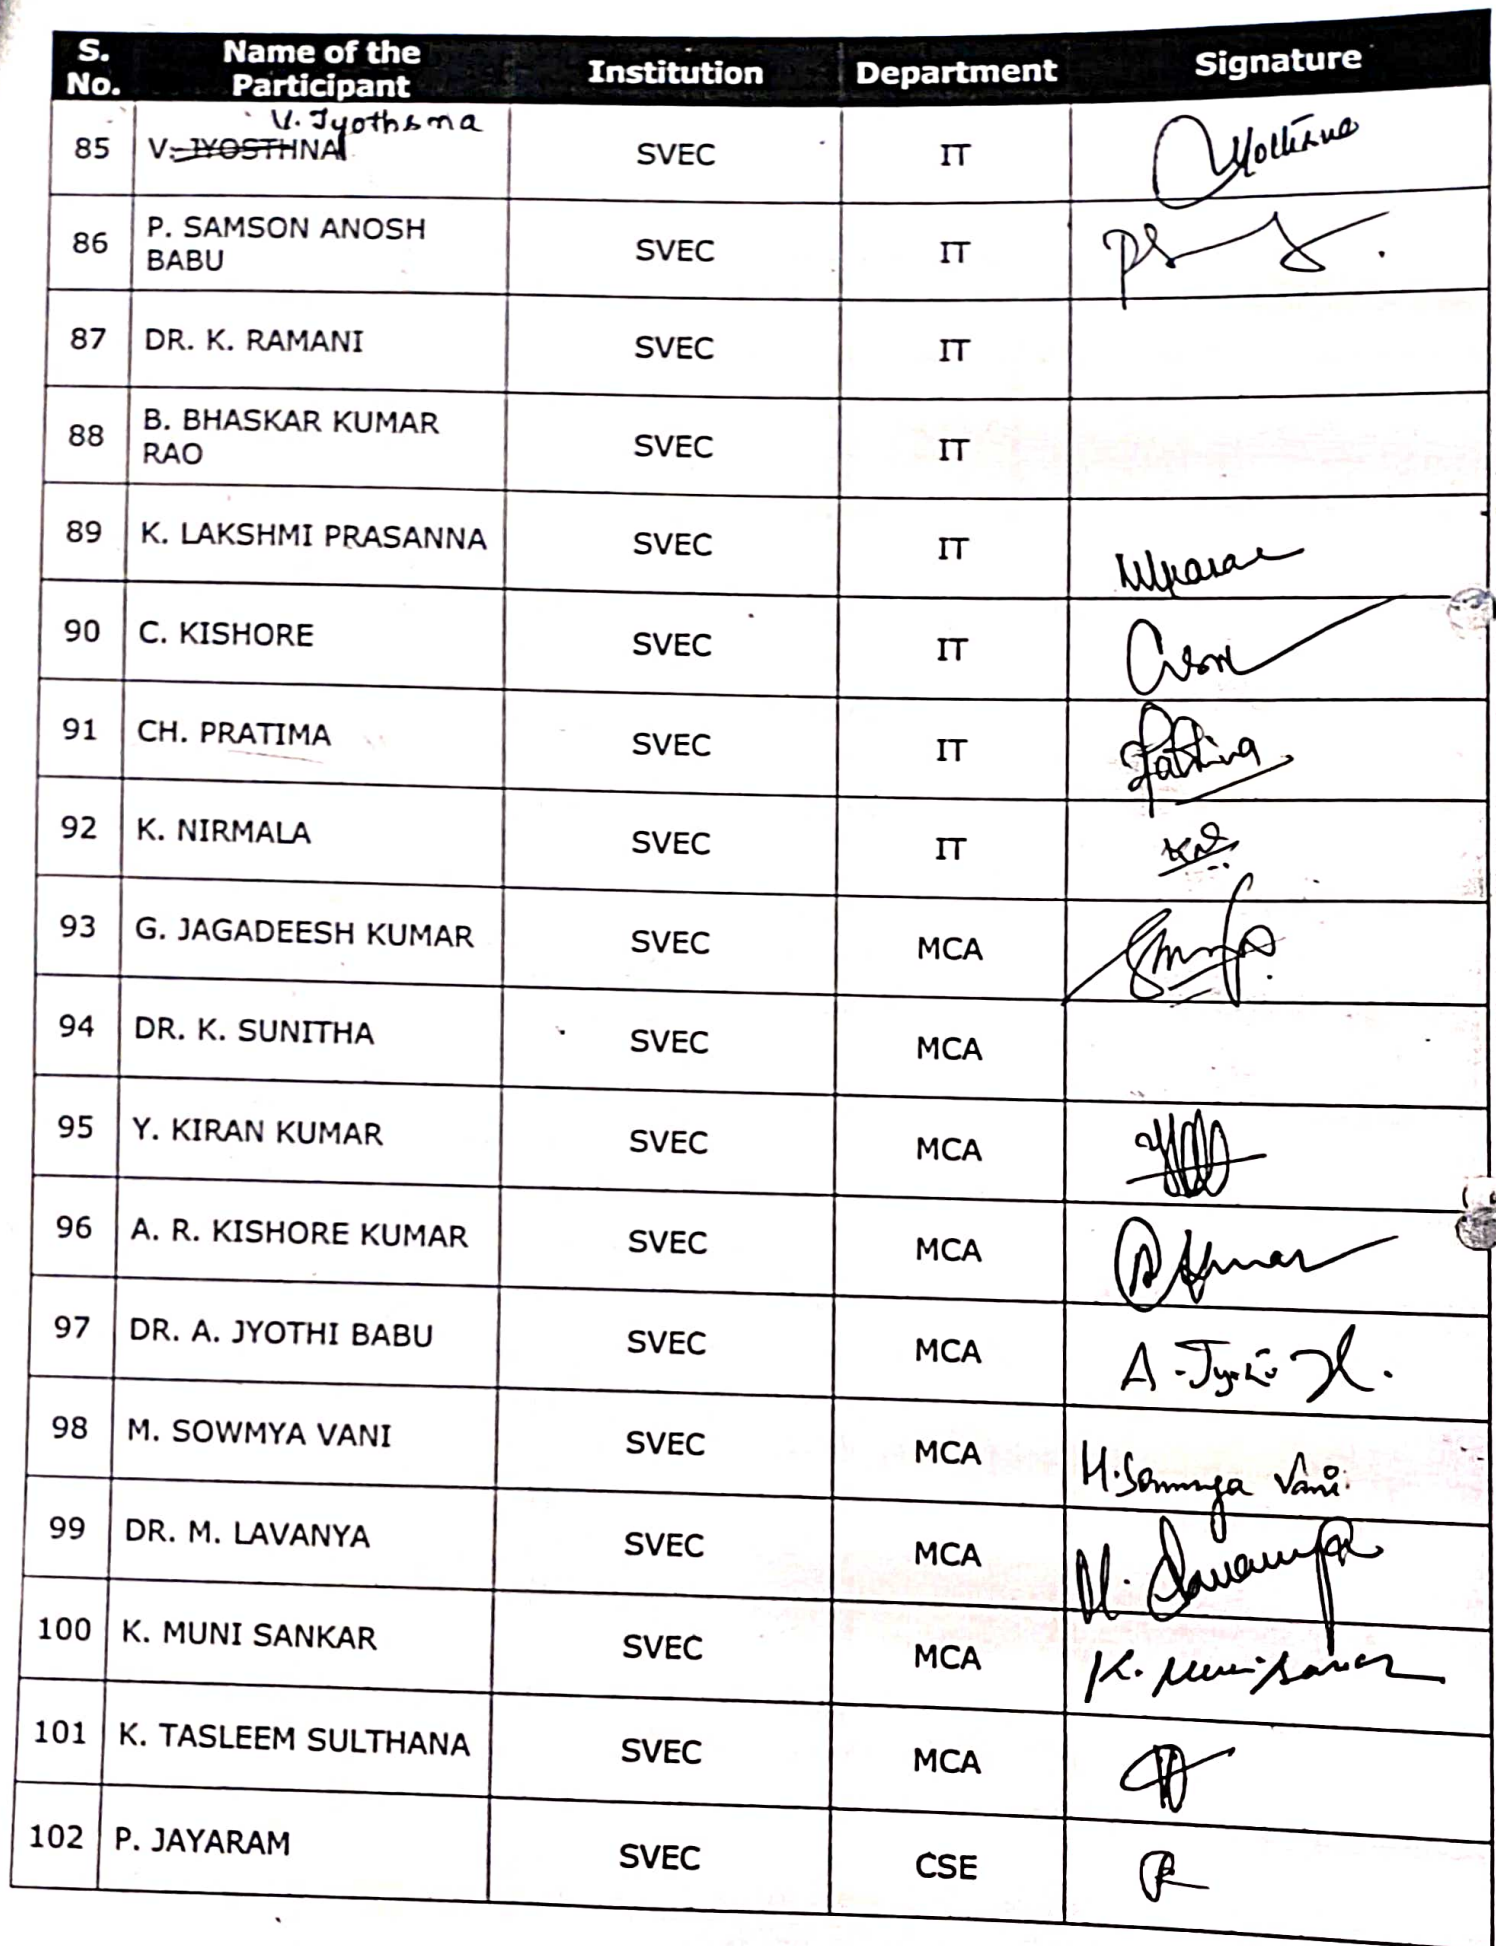 S. No. Name of the Participant Institution Department Signature
V. Jyothsna
85 V. JYOSTHNA SVEC IT
86 P. SAMSON ANOSH BABU SVEC IT
87 DR. K. RAMANI SVEC IT
88 B. BHASKAR KUMAR RAO SVEC IT
89 K. LAKSHMI PRASANNA SVEC IT
90 C. KISHORE SVEC IT
91 CH. PRATIMA SVEC IT
92 K. NIRMALA SVEC IT
93 G. JAGADEESH KUMAR SVEC MCA
94 DR. K. SUNITHA SVEC MCA
95 Y. KIRAN KUMAR SVEC MCA
96 A. R. KISHORE KUMAR SVEC MCA
97 DR. A. JYOTHI BABU SVEC MCA
98 M. SOWMYA VANI SVEC MCA M. Sowmya Vani
99 DR. M. LAVANYA SVEC MCA M. Lavanya
100 K. MUNI SANKAR SVEC MCA
101 K. TASLEEM SULTHANA SVEC MCA
102 P. JAYARAM SVEC CSE